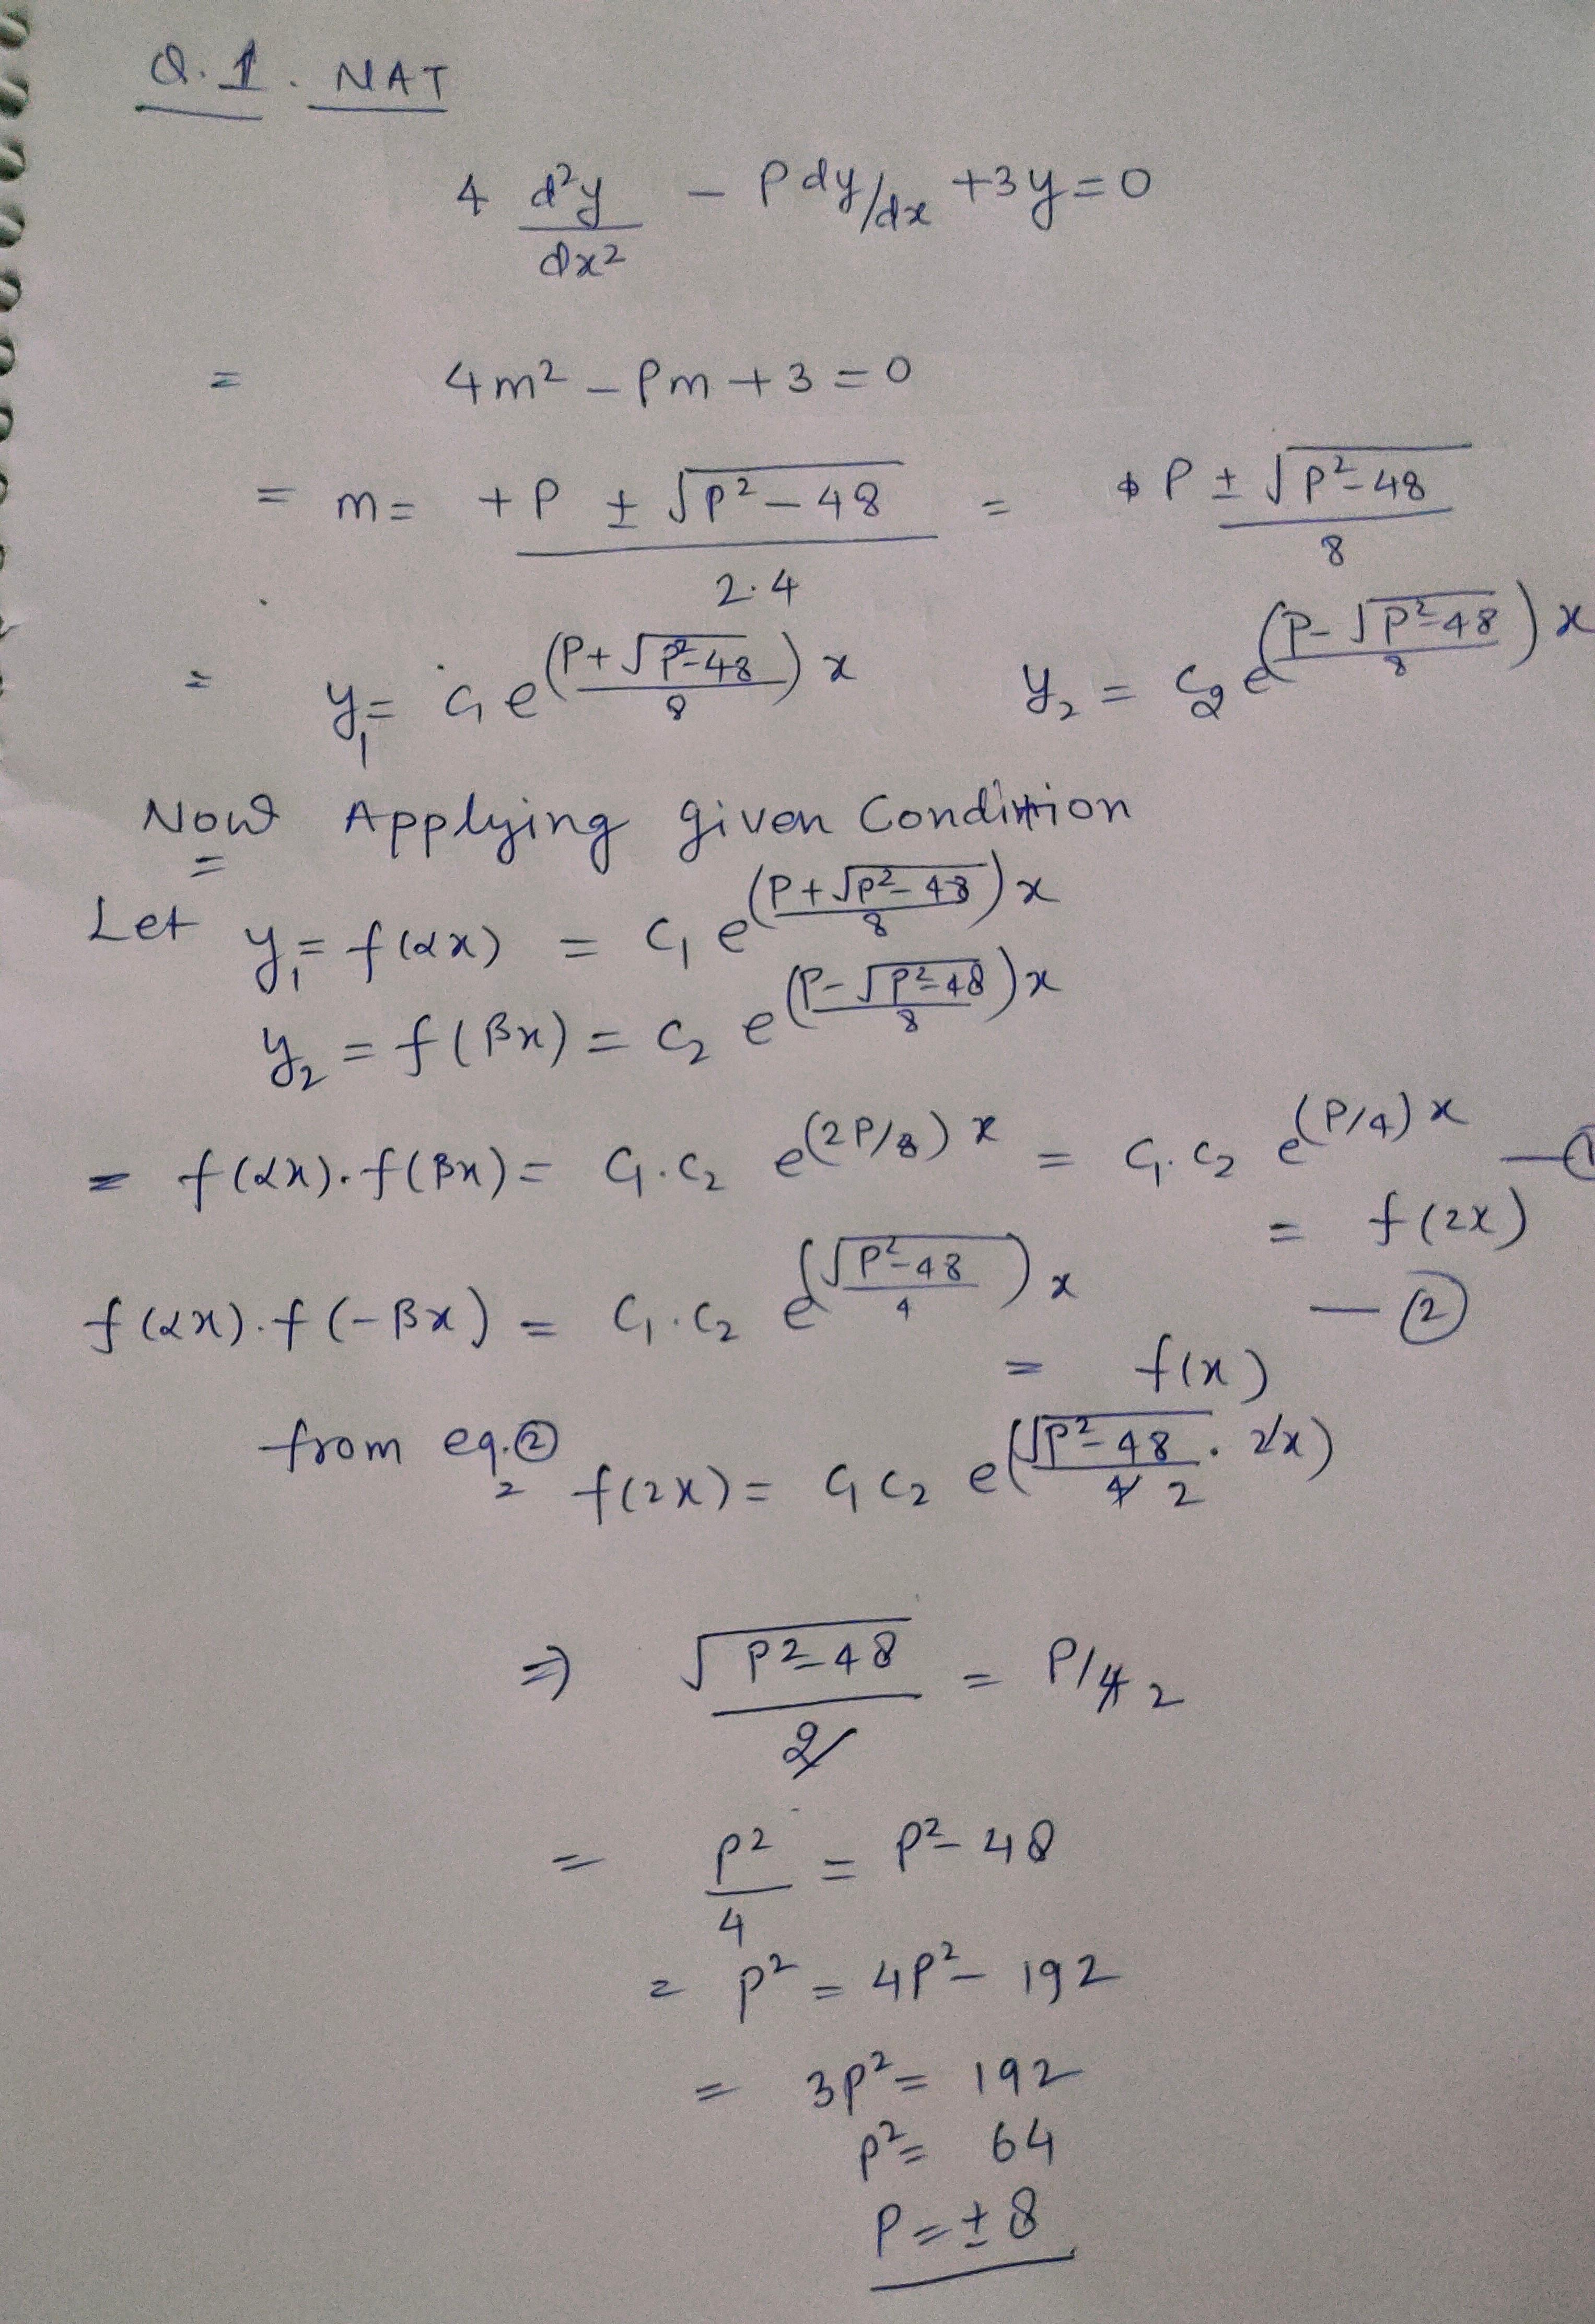 Q.1. NAT
4 d²y/dx² - P dy/dx + 3y = 0
= 4m² - Pm + 3 = 0
= m = +P ± √P²-48 / 2.4 = P ± √P²-48 / 8
= y₁ = C₁ e^(P+√P²-48 / 8)x y₂ = C₂ e^(P-√P²-48 / 8)x
Now Applying given Condition
Let y₁ = f(αx) = C₁ e^(P+√P²-48 / 8)x
y₂ = f(βx) = C₂ e^(P-√P²-48 / 8)x
= f(αx).f(βx) = C₁.C₂ e^(2P/8)x = C₁.C₂ e^(P/4)x — ①
= f(2x)
f(αx).f(-βx) = C₁.C₂ e^(√P²-48 / 4)x — ②
= f(x)
from eq.② f(2x) = C₁ C₂ e^(√P²-48 / 4 2 . 2x)
⇒ √P²-48 / 2 = P/4 2
= P²/4 = P²-48
= P² = 4P² - 192
= 3P² = 192
P² = 64
P = ±8